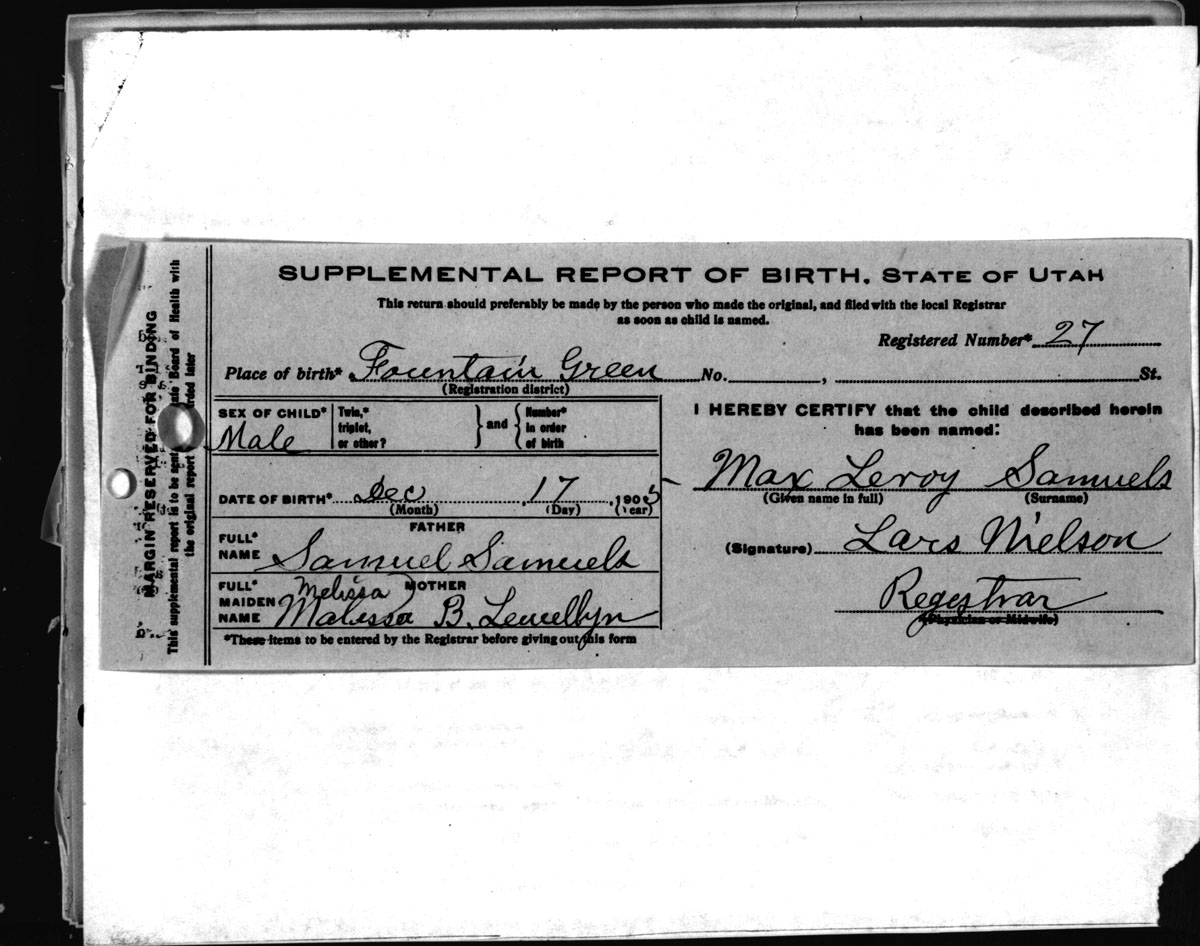 SUPPLEMENTAL REPORT OF BIRTH, STATE OF UTAH
This return should preferably be made by the person who made the original, and filed with the local Registrar
as soon as child is named.
Registered Number* 27
Place of birth* Fountain Green No. , St.
(Registration district)
SEX OF CHILD*
Male
Twin,*
triplet,
or other?
} and {
Number*
in order
of birth
DATE OF BIRTH* Dec 17, 1905
(Month) (Day) (Year)
FATHER
FULL*
NAME Samuel Samuels
MOTHER
FULL*
MAIDEN
NAME
Melissa
Malissa B. Lewellyn
*These items to be entered by the Registrar before giving out this form
I HEREBY CERTIFY that the child described herein
has been named:
Max Leroy Samuels
(Given name in full) (Surname)
(Signature) Lars Nielson
Regestrar
(Physician or Midwife)
MARGIN RESERVED FOR BINDING
This supplemental report is to be sent Board of Health with
the original report
later